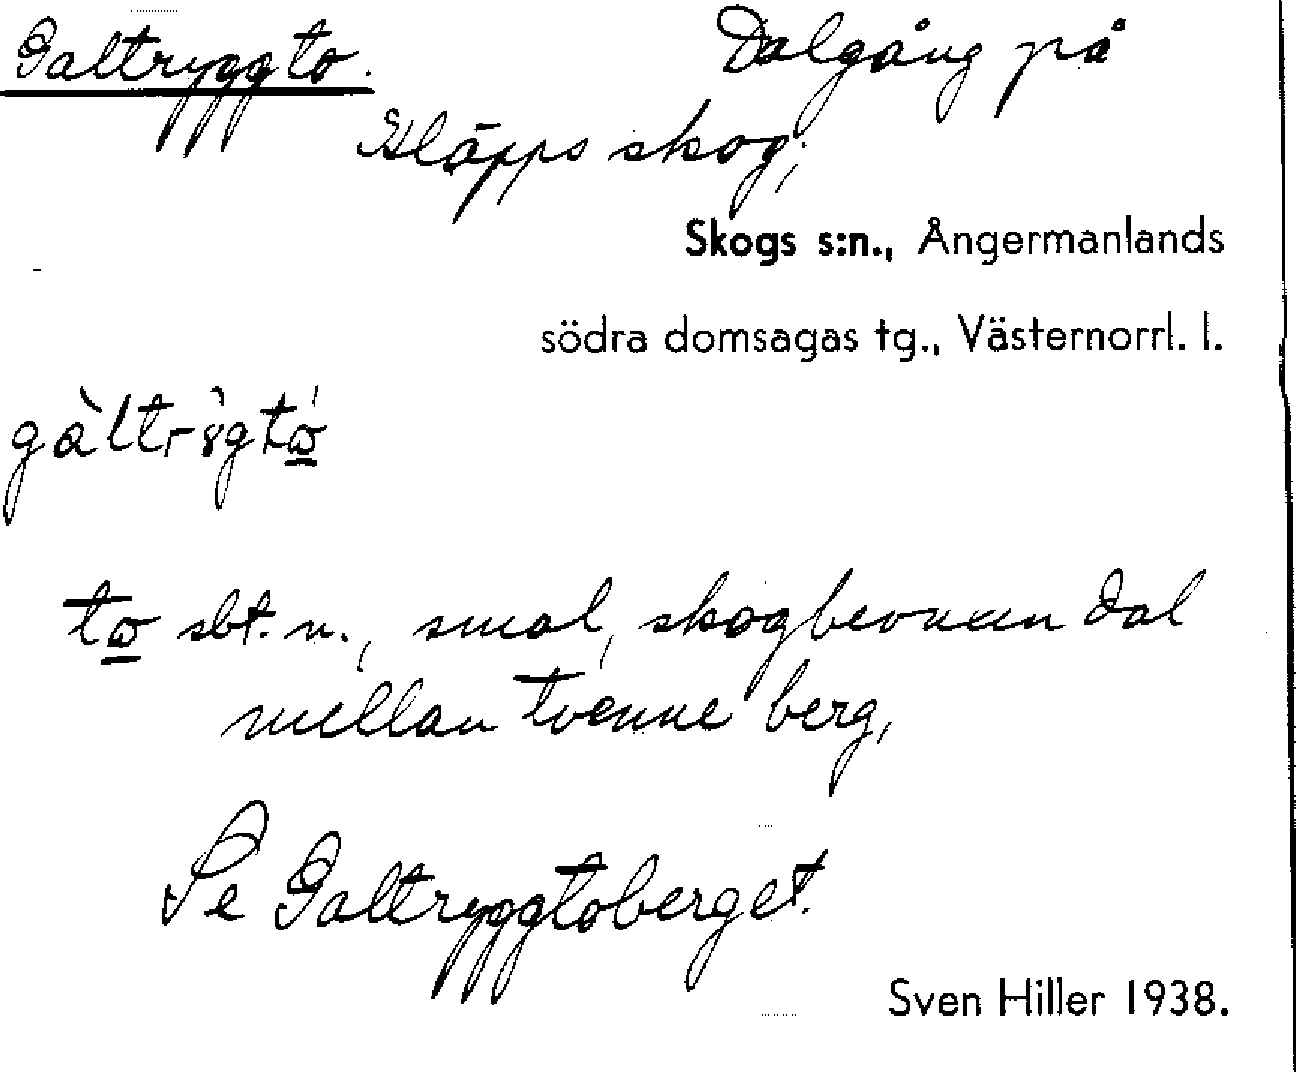 Galtryggto. Dalgång på
Kläpps skog,
Skogs s:n., Ångermanlands
södra domsagas tg., Västernorrl. l.
to sbt. n., smal, skogbevuxen dal
mellan tvenne berg,
Se Galtryggtoberget.
Sven Hiller 1938.